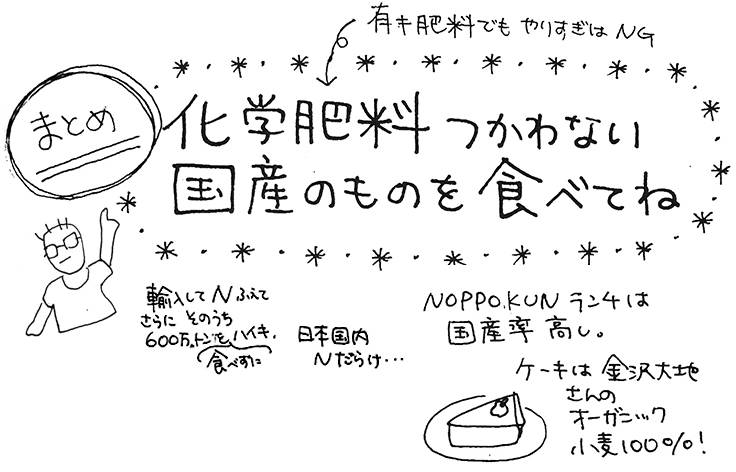 有キ肥料でもやりすぎはNG
まとめ
化学肥料つかわない
国産のものを食べてね
輸入してNふえて
さらにそのうち
600万トンをハイキ.
食べずに
日本国内
Nだらけ…
NOPPO.KUNランチは
国産率高し。
ケーキは金沢大地
さんの
オーガニック
小麦100%!